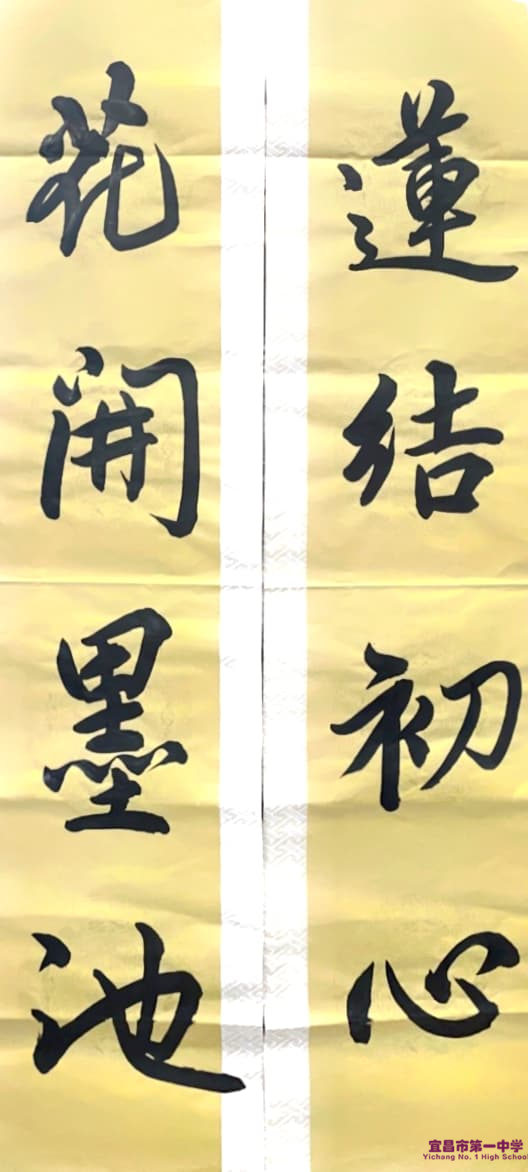 蓮結初心
花開墨池
宜昌市第一中学
Yichang No. 1 High Schoo